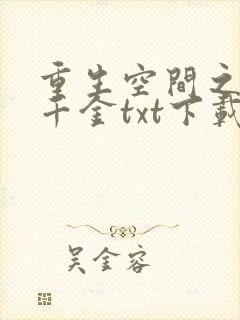 重生空間之
千金txt下載
吳金容